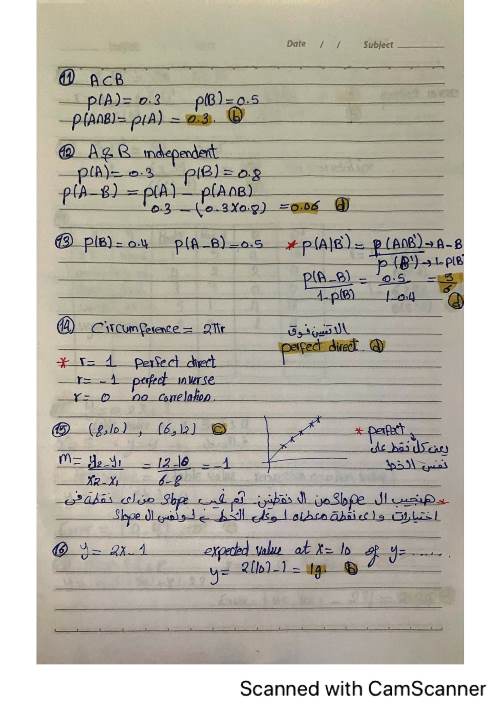 Date / / Subject
11 A⊂B
p(A) = 0.3 p(B) = 0.5
p(A∩B) = p(A) = 0.3. b
12 A & B independent
p(A) = 0.3 p(B) = 0.8
p(A-B) = p(A) - p(A∩B)
0.3 - (0.3x0.8) = 0.06 d
13 p(B) = 0.4 p(A-B) = 0.5 * p(A|B') = p(A∩B') → A-B
p(B') → 1-p(B)
p(A-B) = 0.5 = 5
1-p(B) 1-0.4 6 d
14 Circumference = 2πr الاتنين فوق
perfect direct. d
* r = 1 perfect direct
r = -1 perfect inverse
r = 0 no correlation.
15 (8,10) , (6,12) c * perfect
يعني كل نقط على
نفس الخط
m = y2-y1 = 12-10 = -1
x2-x1 6-8
* هنجيب ال slope من ال نقطتين ثم نجيب slope من اى نقطة فى
اختيارات و اى نقطة معطاه لو على الخط لو نفس ال slope
16 y = 2x-1 expected value at x = 10 of y = ......
y = 2(10)-1 = 19 b
Scanned with CamScanner